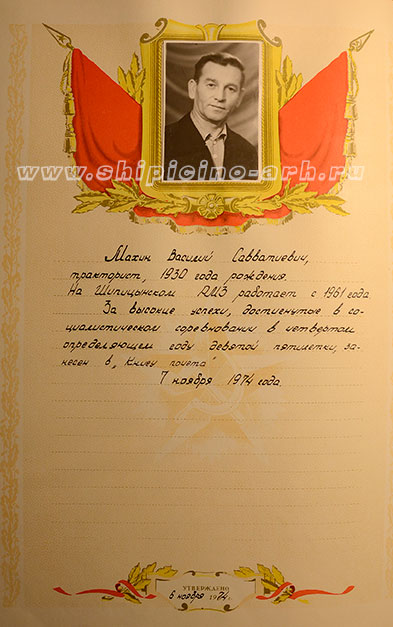 www.shipicino-arh.ru
Махин Василий Савватиевич,
тракторист, 1930 года рождения.
На Шипицынском РМЗ работает с 1961 года
За высокие успехи, достигнутые в со-
циалистическом соревновании в четвертом
определяющем году девятой пятилетки, за-
несен в „Книгу почета"
7 ноября 1974 года.
УТВЕРЖДЕНО
6 ноября 1974г.